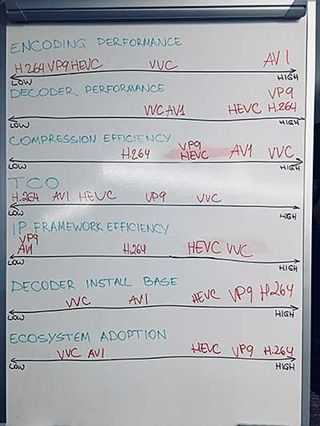 ENCODING PERFORMANCE
H.264 VP9 HEVC VVC AV1
LOW HIGH
DECODER PERFORMANCE
VP9
VVC AV1 HEVC H.264
LOW HIGH
COMPRESSION EFFICIENCY
VP9
H.264 HEVC AV1 VVC
LOW HIGH
TCO
H.264 AV1 HEVC VP9 VVC
LOW HIGH
IP FRAMEWORK EFFICIENCY
VP9
AV1 H.264 HEVC VVC
LOW HIGH
DECODER INSTALL BASE
VVC AV1 HEVC VP9 H.264
LOW HIGH
ECOSYSTEM ADOPTION
VVC AV1 HEVC VP9 H.264
LOW HIGH